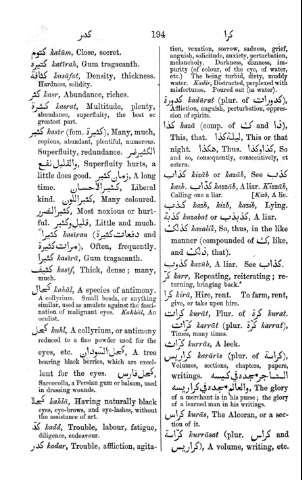 كدر
194
كرا
كتوم katūm, Close, secret.
كثيرة katīrah, Gum tragacanth.
كثافة kasāfat, Density, thickness.
Hardness, solidity.
كثر kasr, Abundance, riches.
كثرت kasrat, Multitude, plenty,
abundance, superfluity, the best or
greatest part.
كثير kasīr (fem. كثيرة), Many, much,
copious, abundant, plentiful, numerous.
Superfluity, redundance.
Superfluity hurts, a
little does good. A long
time. Liberal
kind. Many coloured.
Most noxious or hurt-
ful. Little and much.
كثيرا kasīran
Often, frequently.
كثيرا kasīrā, Gum tragacanth.
كثيف kasīf, Thick, dense; many,
much.
كحال kahāl, A species of antimony.
A collyrium. Small beads, or anything
similar, used as amulets against the fasci-
nation of malignant eyes. Kahhāl, An
oculist.
كحل kuhl, A collyrium, or antimony
reduced to a fine powder used for the
eyes, etc. كحل السودان, A tree
bearing black berries, which are excel-
lent for the eyes. كحل فارس,
Sarcocolla, a Persian gum or balsam, used
in dressing wounds.
كحلا kahlā, Having naturally black
eyes, eye-brows, and eye-lashes, without
the assistance of art.
كد kadd, Trouble, labour, fatigue,
diligence, endeavour.
كدر kadar, Trouble, affliction, agita-
tion, vexation, sorrow, sadness, grief,
anguish, solicitude, anxiety, perturbation,
melancholy. Darkness, dimness, im-
purity (of colour, of the eye, of water,
etc.) The being turbid, dirty, muddy
water. Kadir, Distracted, perplexed with
misfortunes. Poured out (as water).
كدورة kadūrat (plur. of كدورات),
Affliction, anguish, perturbation, oppres-
sion of spirits.
كذا kazā (comp. of ك and ذا),
This, that. كذا ليلة, This or that
night. هكذا, Thus. كذا وكذا, So
and so, consequently, consecutively, et
cetera.
كذاب kizāb or kazāb, See كذب
kazb. كذاب kazzāb, A liar. Kizzāb,
Calling one a liar. [Kāzb, A lie.
كذب kazb, kizb, kazib, Lying.
كذبة kazabat or كذبذب, A liar.
كذلك kazalik, So, thus, in the like
manner (compounded of ك, like,
and ذلك, that).
كذوب kazūb, A liar. See كذاب.
كر karr, Repeating, reiterating; re-
turning, bringing back.
كرا kirā, Hire, rent. To farm, rent,
give, or take upon hire.
كرات kurāt, Plur. of كرة kurat.
كرات karrāt (plur. of كرة karrat),
Times, many times.
كراث kurrās, A leek.
كراريس kerārīs (plur. of كراسة),
Volumes, sections, chapters, papers,
writings.
The glory
of a merchant is in his purse; the glory
of a learned man in his writings.
كراسة kurās, The Alcoran, or a sec-
tion of it.
كراسة kurrāsat (plur. كراس and
كراريس), A volume, writing, etc.